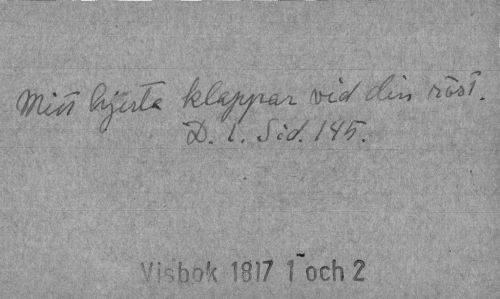 Mitt hjerta klappar vid din röst.
D. 1. Sid. 145.
Visbok 1817 1 och 2